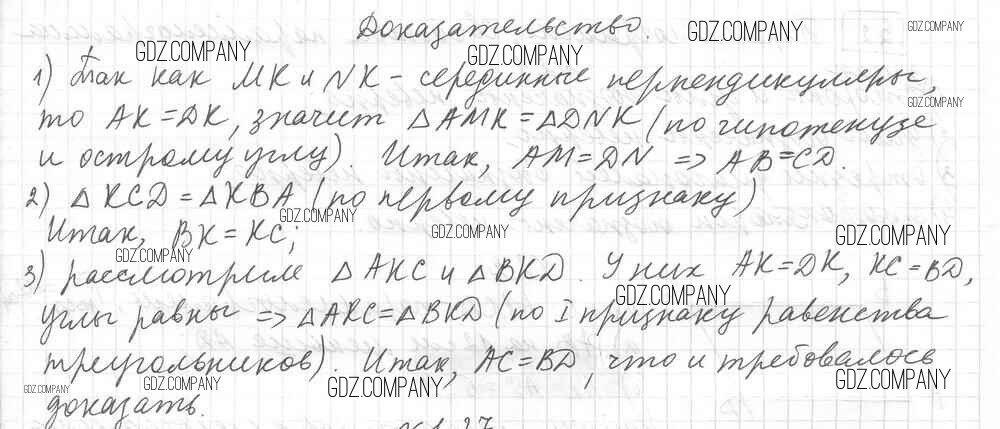 Доказательство.
1) Так как MK и NK – серединные перпендикуляры,
то AK = DK, значит △AMK = △DNK (по гипотенузе
и острому углу). Итак, AM = DN => AB = CD.
2) △KCD = △KBA (по первому признаку)
Итак, BK = KC;
3) рассмотрим △AKC и △BKD. У них AK = DK, KC = BD,
углы равны => △AKC = △BKD (по I признаку равенства
треугольников). Итак, AC = BD, что и требовалось
доказать.
GDZ.COMPANY
GDZ.COMPANY
GDZ.COMPANY
GDZ.COMPANY
GDZ.COMPANY
GDZ.COMPANY
GDZ.COMPANY
GDZ.COMPANY
GDZ.COMPANY
GDZ.COMPANY
GDZ.COMPANY
GDZ.COMPANY
GDZ.COMPANY
GDZ.COMPANY